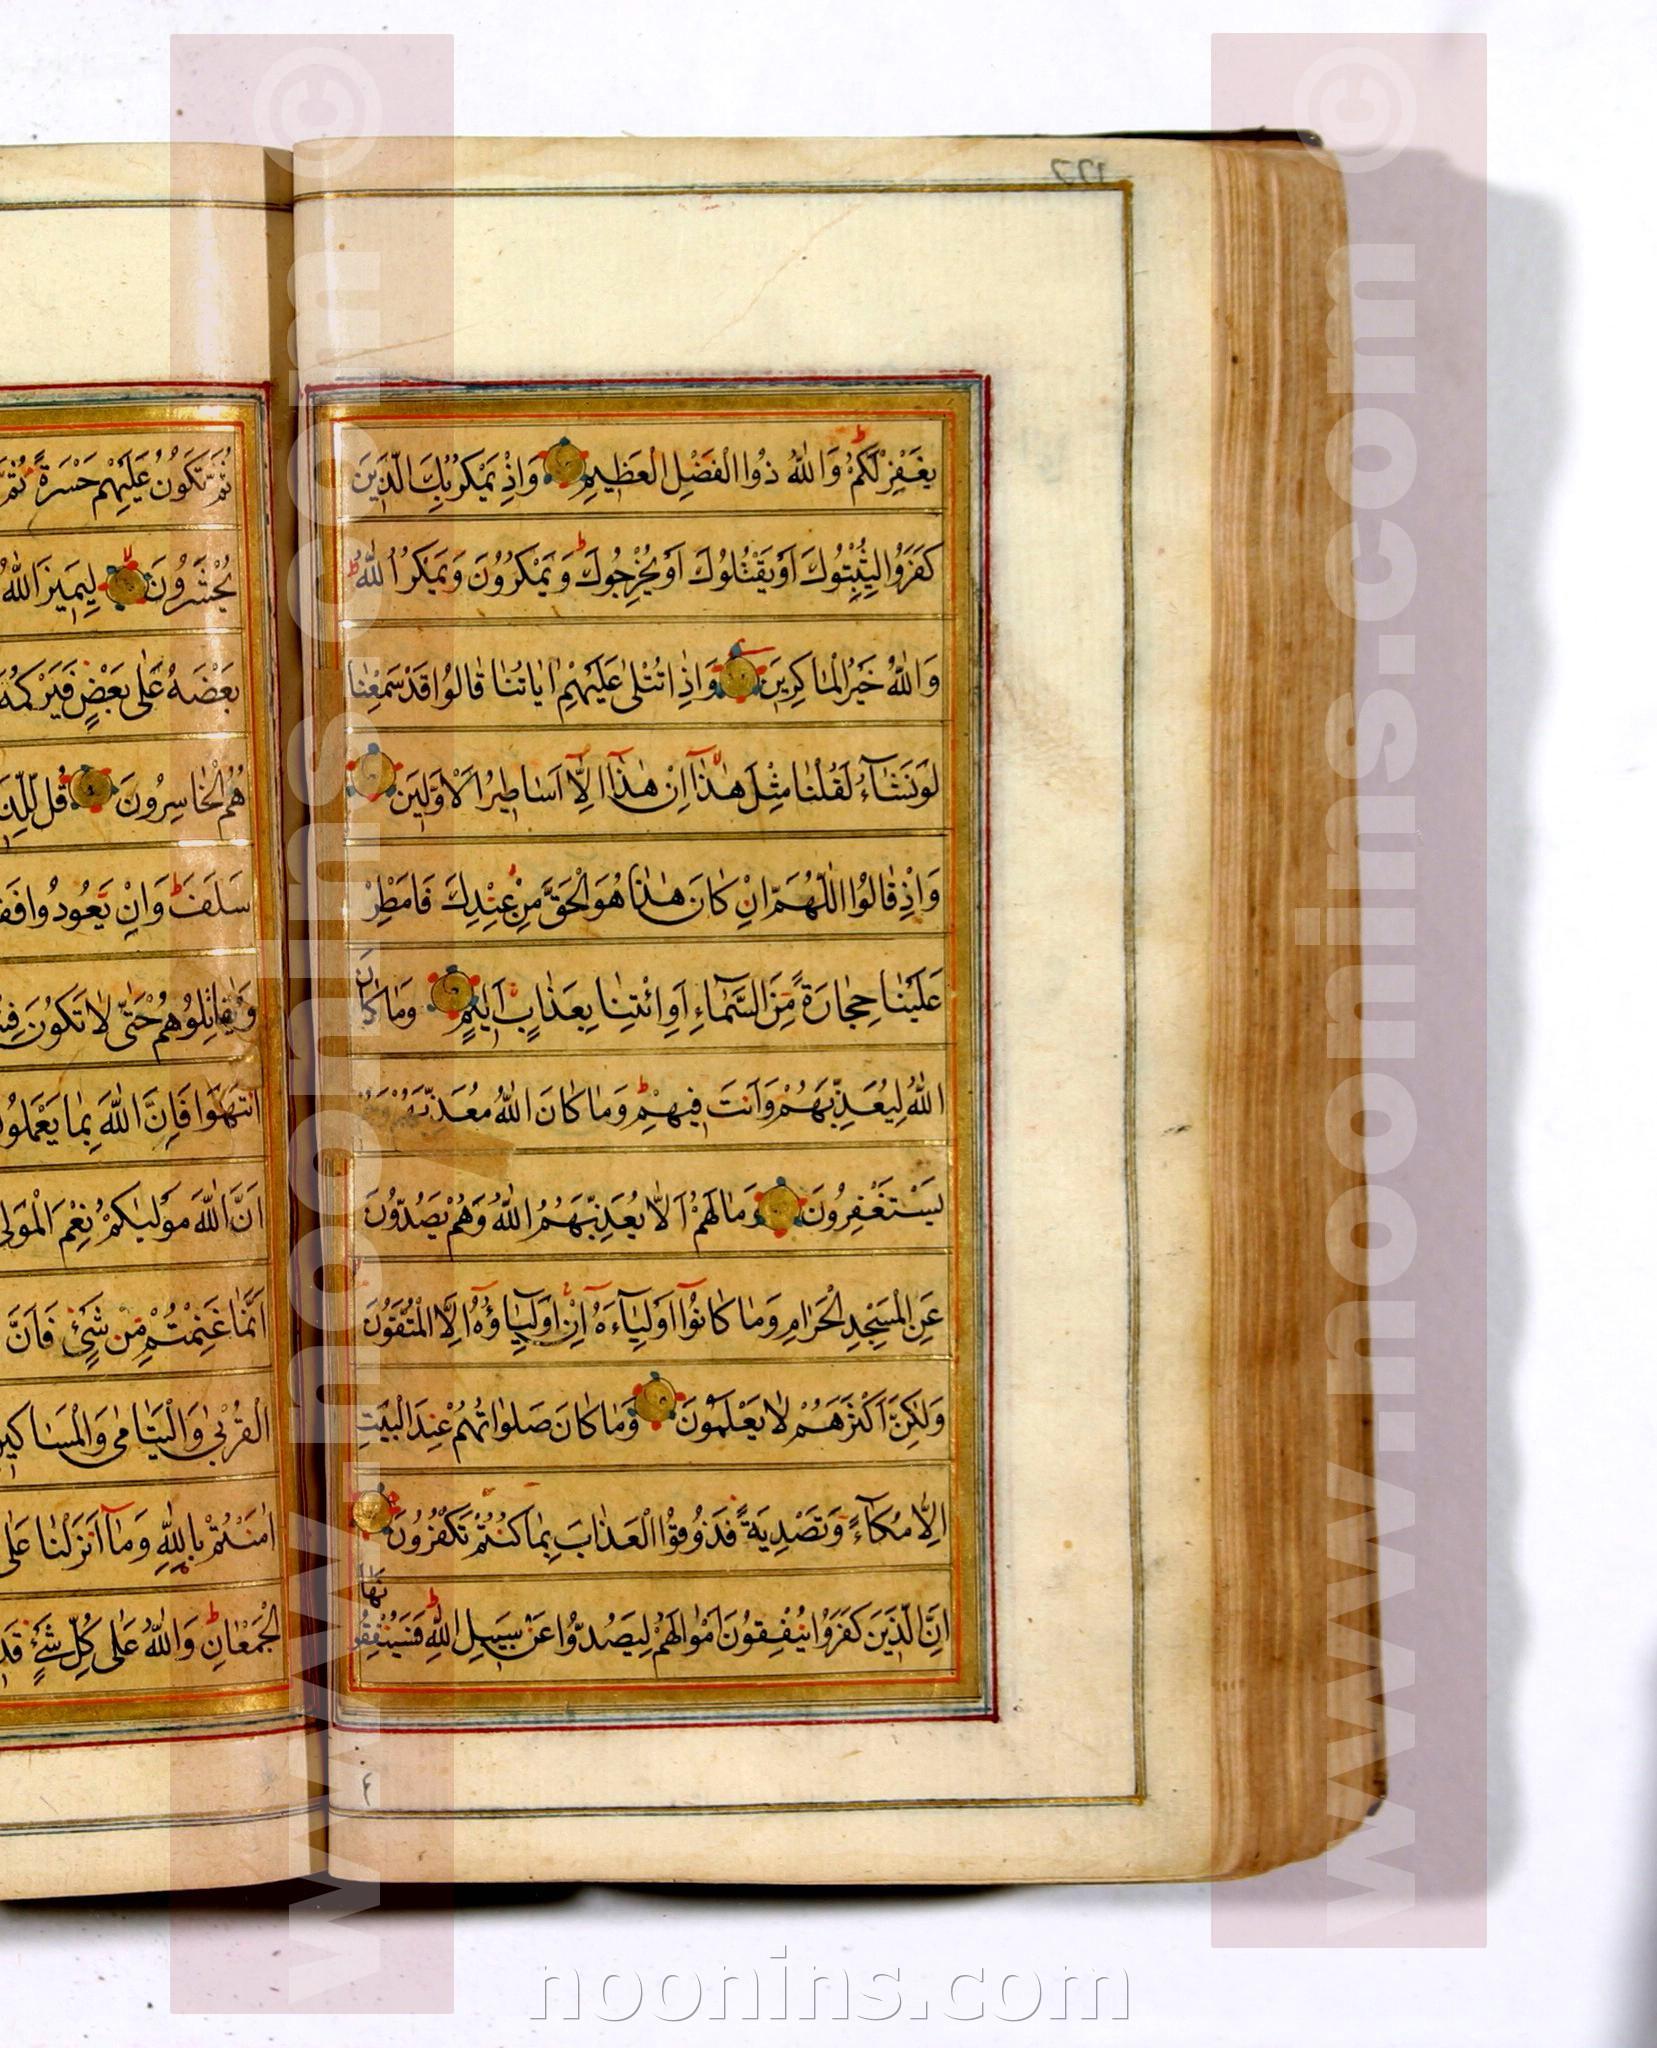 يَغْفِرْ لَكُمْ وَاللّٰهُ ذُوا الْفَضْلِ الْعَظِيمِ وَاِذْ يَمْكُرُ بِكَ الَّذِينَ
كَفَرُوا لِيُثْبِتُوكَ اَوْ يَقْتُلُوكَ اَوْ يُخْرِجُوكَ وَيَمْكُرُونَ وَيَمْكُرُ اللّٰهُ
وَاللّٰهُ خَيْرُ الْمَاكِرِينَ وَاِذَا تُتْلٰى عَلَيْهِمْ اٰيَاتُنَا قَالُوا قَدْ سَمِعْنَا
لَوْ نَشَآءُ لَقُلْنَا مِثْلَ هٰذَآ اِنْ هٰذَآ اِلَّآ اَسَاطِيرُ الْاَوَّلِينَ
وَاِذْ قَالُوا اللّٰهُمَّ اِنْ كَانَ هٰذَا هُوَ الْحَقَّ مِنْ عِنْدِكَ فَاَمْطِرْ
عَلَيْنَا حِجَارَةً مِنَ السَّمَآءِ اَوِ ائْتِنَا بِعَذَابٍ اَلِيمٍ وَمَا كَانَ
اللّٰهُ لِيُعَذِّبَهُمْ وَاَنْتَ فِيهِمْ وَمَا كَانَ اللّٰهُ مُعَذِّبَهُمْ وَهُمْ
يَسْتَغْفِرُونَ وَمَا لَهُمْ اَلَّا يُعَذِّبَهُمُ اللّٰهُ وَهُمْ يَصُدُّونَ
عَنِ الْمَسْجِدِ الْحَرَامِ وَمَا كَانُوٓا اَوْلِيَآءَهُ اِنْ اَوْلِيَاؤُهُٓ اِلَّا الْمُتَّقُونَ
وَلٰكِنَّ اَكْثَرَهُمْ لَا يَعْلَمُونَ وَمَا كَانَ صَلَوٰاتُهُمْ عِنْدَ الْبَيْتِ
اِلَّا مُكَآءً وَتَصْدِيَةً فَذُوقُوا الْعَذَابَ بِمَا كُنْتُمْ تَكْفُرُونَ
اِنَّ الَّذِينَ كَفَرُوا يُنْفِقُونَ اَمْوَالَهُمْ لِيَصُدُّوا عَنْ سَبِيلِ اللّٰهِ فَسَيُنْفِقُونَهَا
ثُمَّ تَكُونُ عَلَيْهِمْ حَسْرَةً ثُمَّ
يُحْشَرُونَ لِيَمِيزَ اللّٰهُ
بَعْضَهُ عَلٰى بَعْضٍ فَيَرْكُمَهُ
هُمُ الْخَاسِرُونَ قُلْ لِلَّذِينَ
سَلَفَ وَاِنْ يَعُودُوا فَقَ
وَقَاتِلُوهُمْ حَتّٰى لَا تَكُونَ فِتْ
انْتَهَوْا فَاِنَّ اللّٰهَ بِمَا يَعْمَلُونَ
اَنَّ اللّٰهَ مَوْلٰيكُمْ نِعْمَ الْمَوْلٰى
اَنَّمَا غَنِمْتُمْ مِنْ شَيْئٍ فَاَنَّ
الْقُرْبٰى وَالْيَتَامٰى وَالْمَسَاكِينِ
اٰمَنْتُمْ بِاللّٰهِ وَمَآ اَنْزَلْنَا عَلٰى
الْجَمْعَانِ وَاللّٰهُ عَلٰى كُلِّ شَيْئٍ قَدِ
www.noonins.com ©
www.noonins.com ©
noonins.com